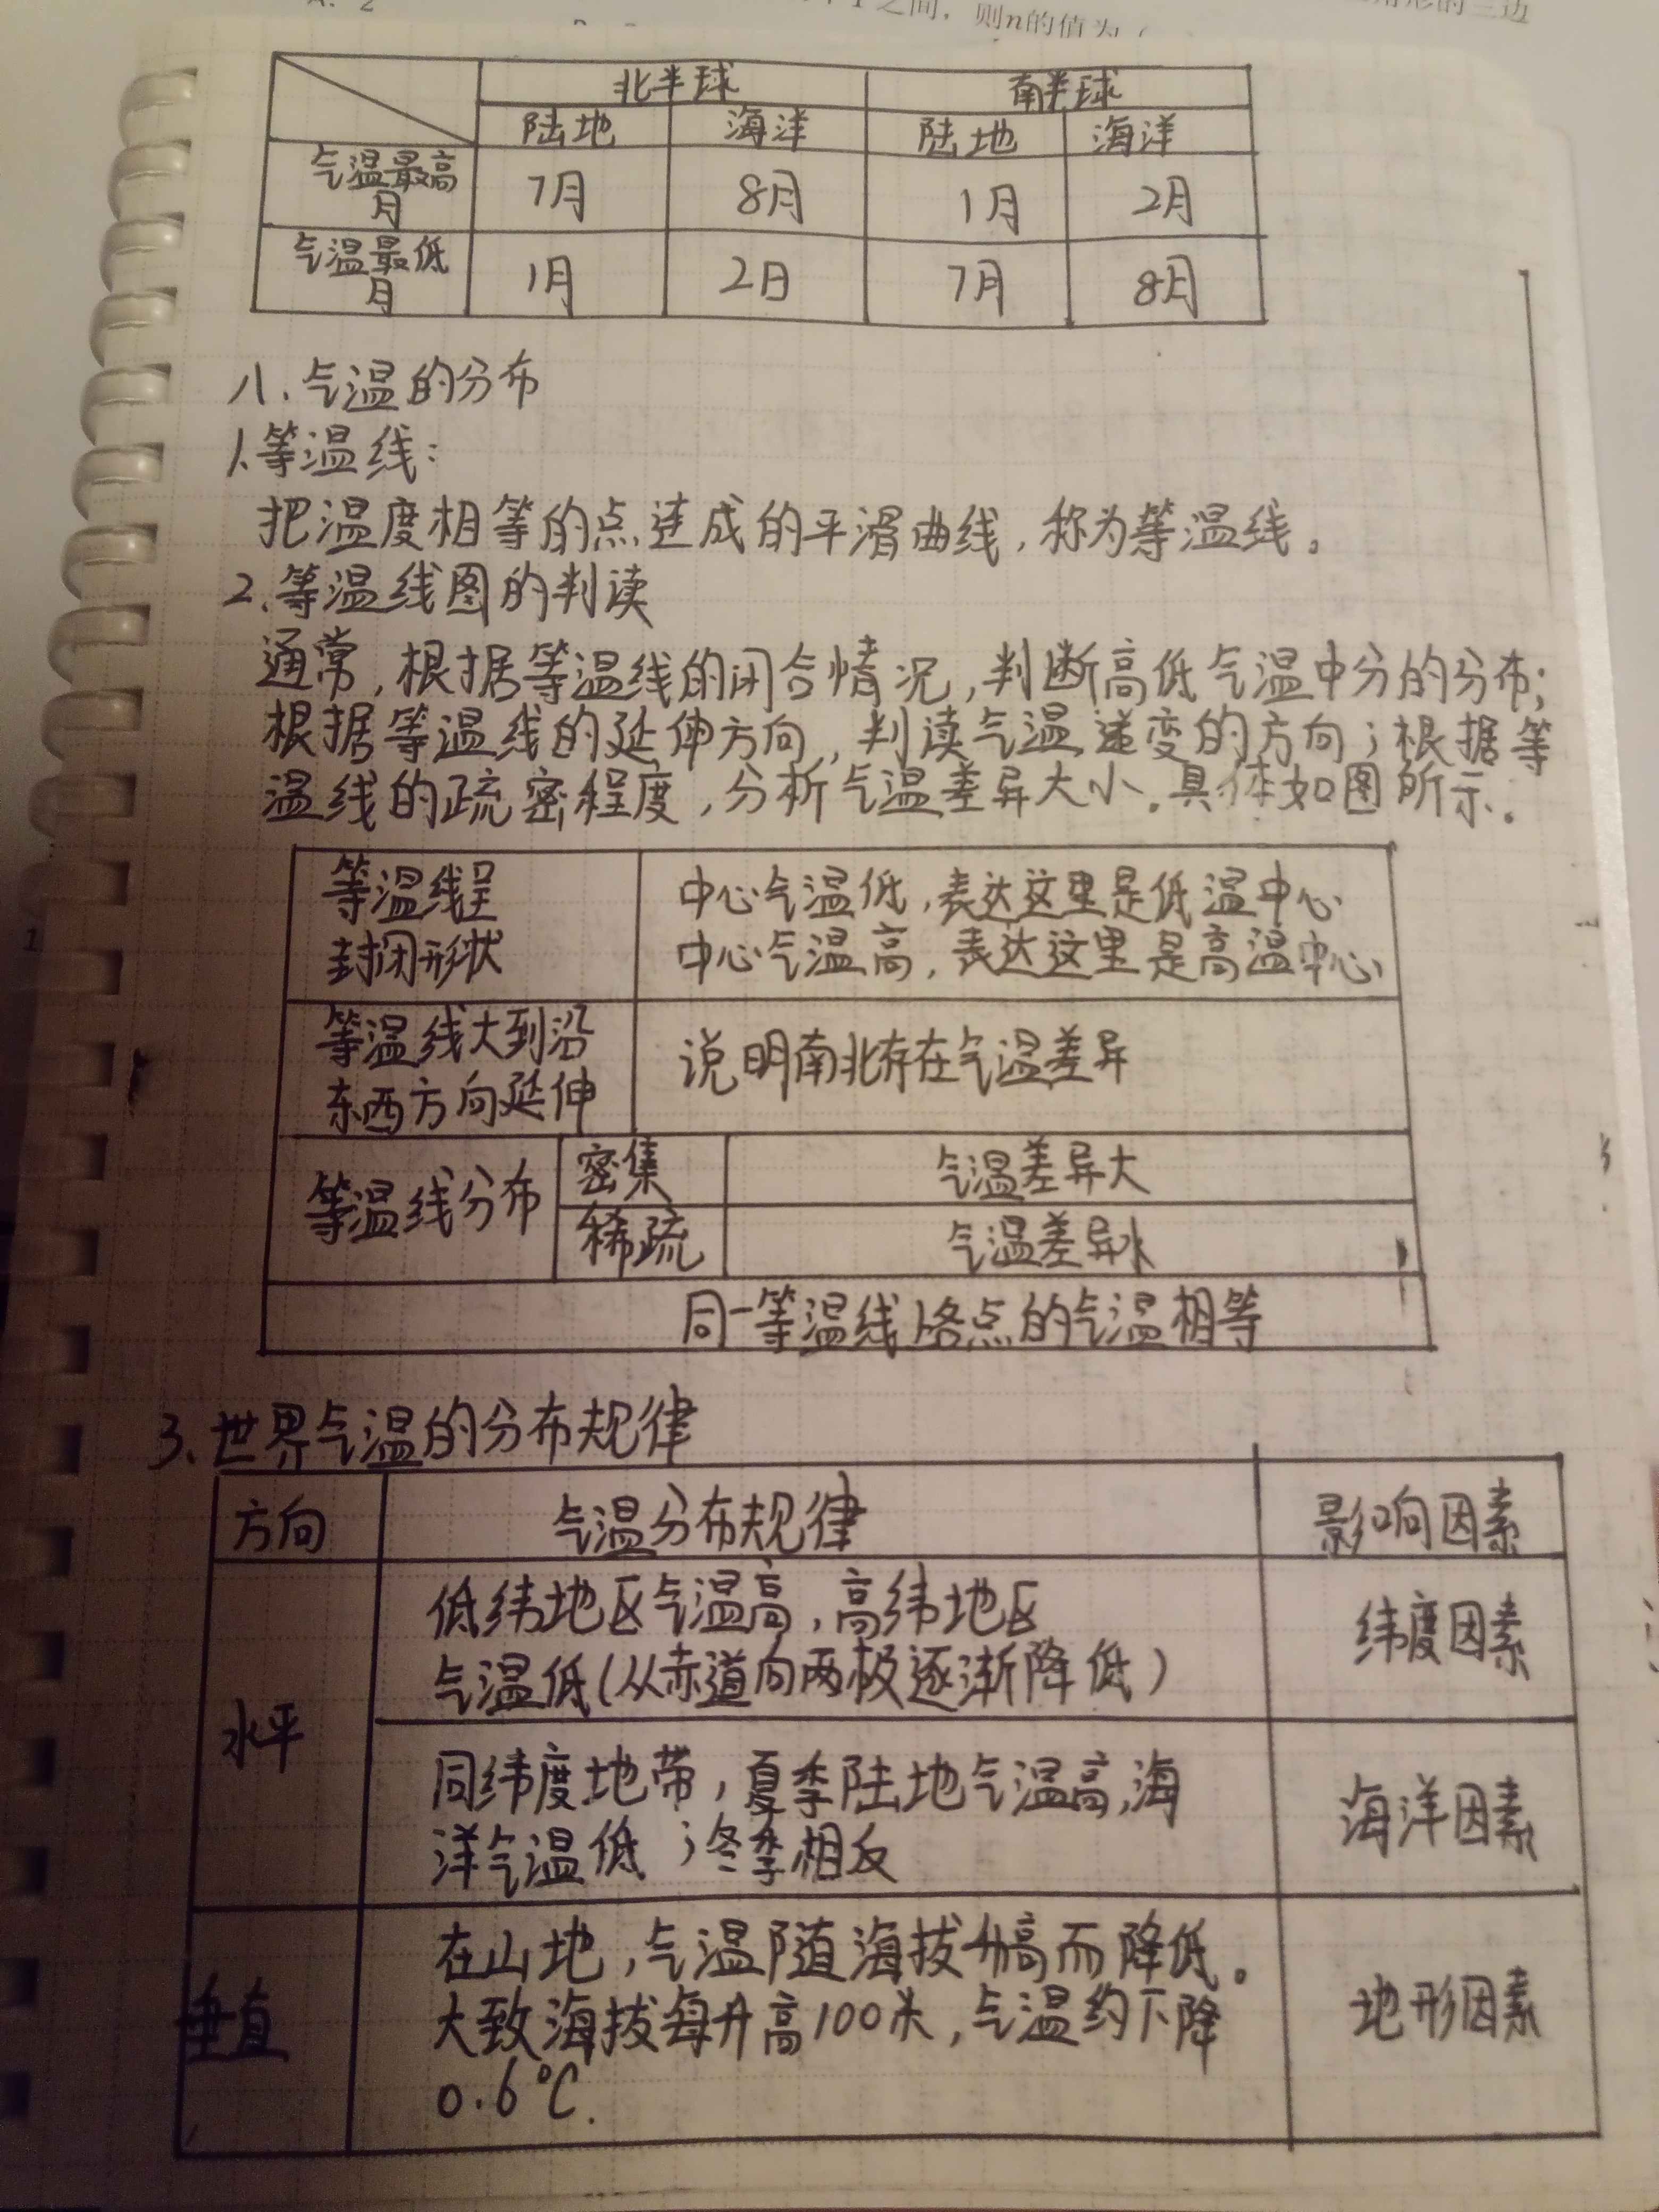 之间，则n的值为（
北半球 南半球
陆地 海洋 陆地 海洋
气温最高
月 7月 8月 1月 2月
气温最低
月 1月 2日 7月 8月
八、气温的分布
1.等温线：
把温度相等的点连成的平滑曲线，称为等温线。
2.等温线图的判读
通常，根据等温线的闭合情况，判断高低气温中分的分布；
根据等温线的延伸方向，判读气温递变的方向；根据等
温线的疏密程度，分析气温差异大小。具体如图所示。
等温线呈
封闭形状
中心气温低，表达这里是低温中心
中心气温高，表达这里是高温中心
等温线大到沿
东西方向延伸
说明南北存在气温差异
等温线分布
密集 气温差异大
稀疏 气温差异小
同一等温线上各点的气温相等
3.世界气温的分布规律
方向 气温分布规律 影响因素
水平
低纬地区气温高，高纬地区
气温低（从赤道向两极逐渐降低）
纬度因素
同纬度地带，夏季陆地气温高，海
洋气温低；冬季相反
海洋因素
垂直
在山地，气温随海拔升高而降低。
大致海拔每升高100米，气温约下降
0.6℃.
地形因素